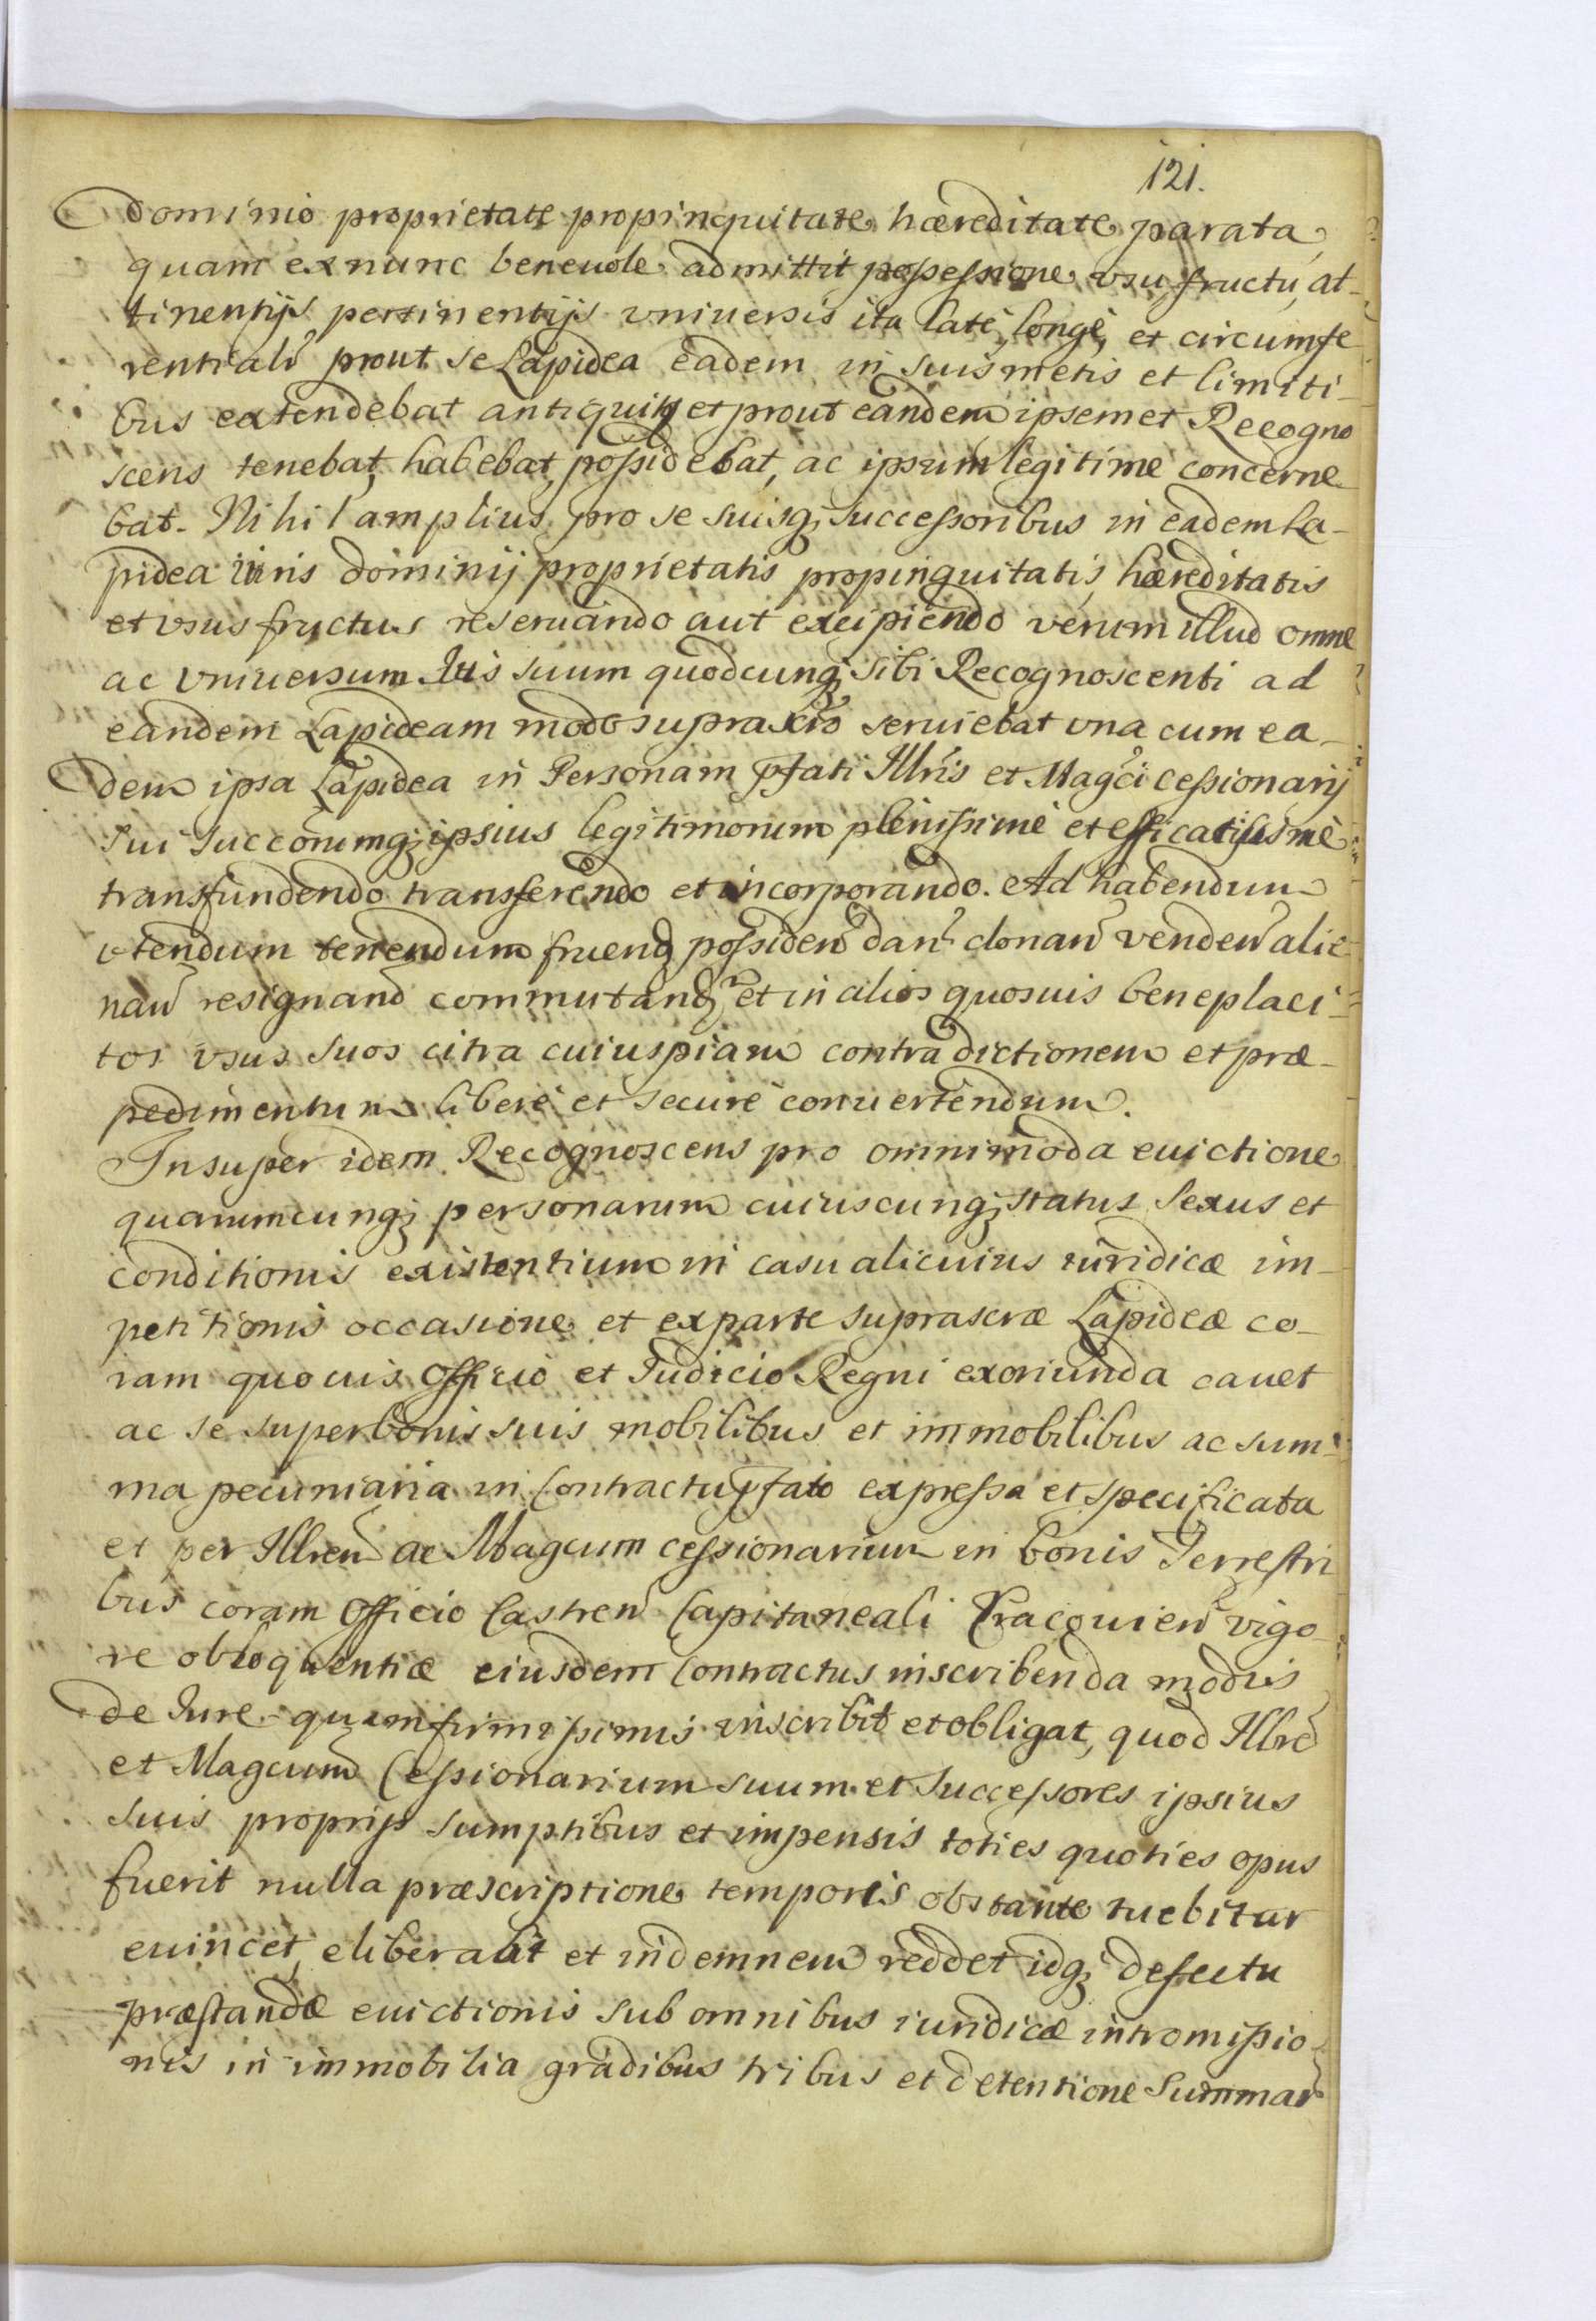 121.
dominio proprietate propinquitate hæreditate parata,
quam ex nunc beneuole admittit possessione vsu, fructu, at-
tinentijs pertinentijs vniuersis ita latè, longè, et circumfe
rentialr prout se Lapidea eadem in suis metis et limiti-
bus extendebat antiquitq et prout eandem ipsemet Recogno
scens tenebat, habebat, possidebat, ac ipsum legitimè concerne
bat. Nihil amplius pro se suisq; successoribus in eadem La-
pidea iuris dominij proprietatis propinquitatis, hæreditatis
et vsus fructus reseruando aut excipiendo verum illud omne
ac vniuersum Ius suum quodcunq; sibi Recognoscenti ad
eandem Lapideam modo suprascto seruiebat vna cum ea-
dem ipsa Lapidea in Personam pfati Illris et Magci cessionarij
sui succorumq; ipsius legitimorum plenissimè et efficacissimè
transfundendo transferendo et incorporando. Ad habendum
vtendum tenendum fruend possiden dan donan venden alie
nan resignand commutand et in alios quosuis beneplaci-
tos vsus suos citra cuiuspiam contradictionem et præ-
pedimentum liberè et securè conuertendum.
Insuper idem Recognoscens pro omnimoda euictione
quarumcunq; personarum cuiuscunq; status sexus et
conditionis existentium in casu alicuius iuridicæ im-
petitionis occasione et ex parte suprascræ Lapideæ co-
ram quouis Officio et Judicio Regni exoriunda cauet
ac se super bonis suis mobilibus et immobilibus ac sum-
ma pecuniaria in Contractu pfato expressa et specificata
et per Illren ac Magcum cessionarium in bonis Terrestri
bus coram Officio Castren Capitaneali Cracouien vigo
re obloquentiæ eiusdem Contractus inscribenda modis
de Jure quam firmissimis inscribit et obligat, quod Illre
et Magcum Cessionarium suum et successores ipsius
suis proprijs sumptibus et impensis toties quoties opus
fuerit nulla præscriptione temporis obstante tuebitur
euincet, eliberabit et indemnem reddet idq; defectu
præstandæ euictionis sub omnibus iuridicæ intromissio
nis in immobilia gradibus tribus et detentione Summar